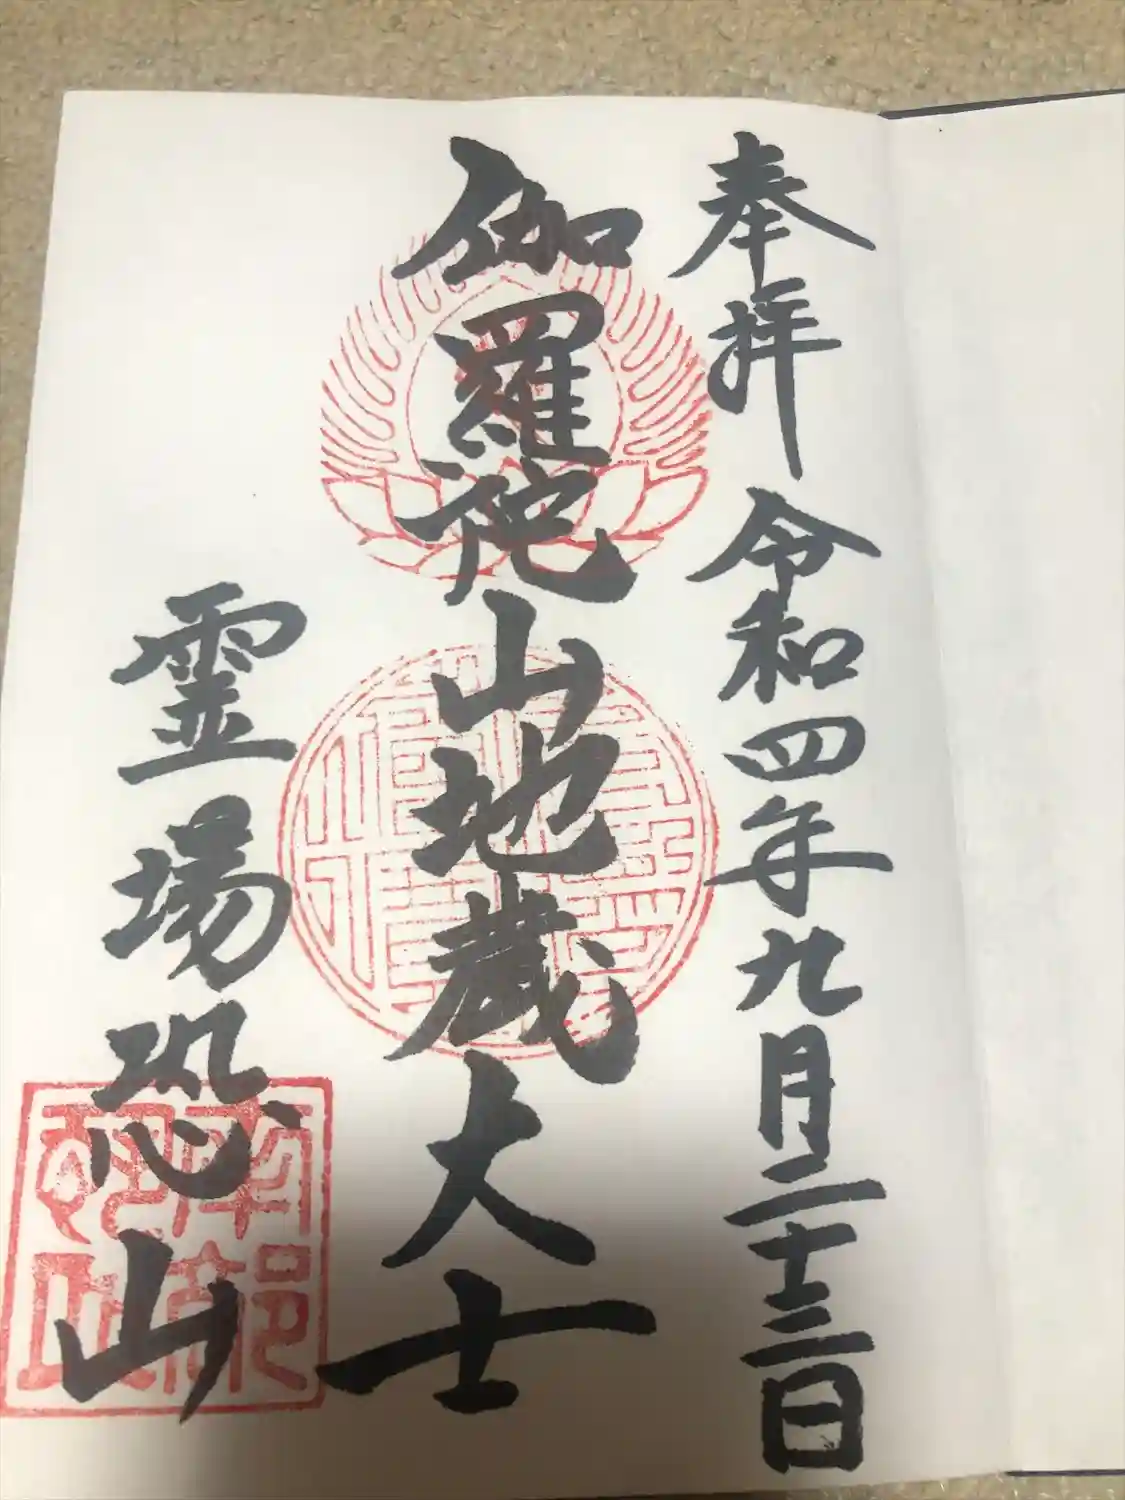 奉拝 令和四年九月二十三日
伽羅陀山地蔵大士
霊場恐山
南部恐山